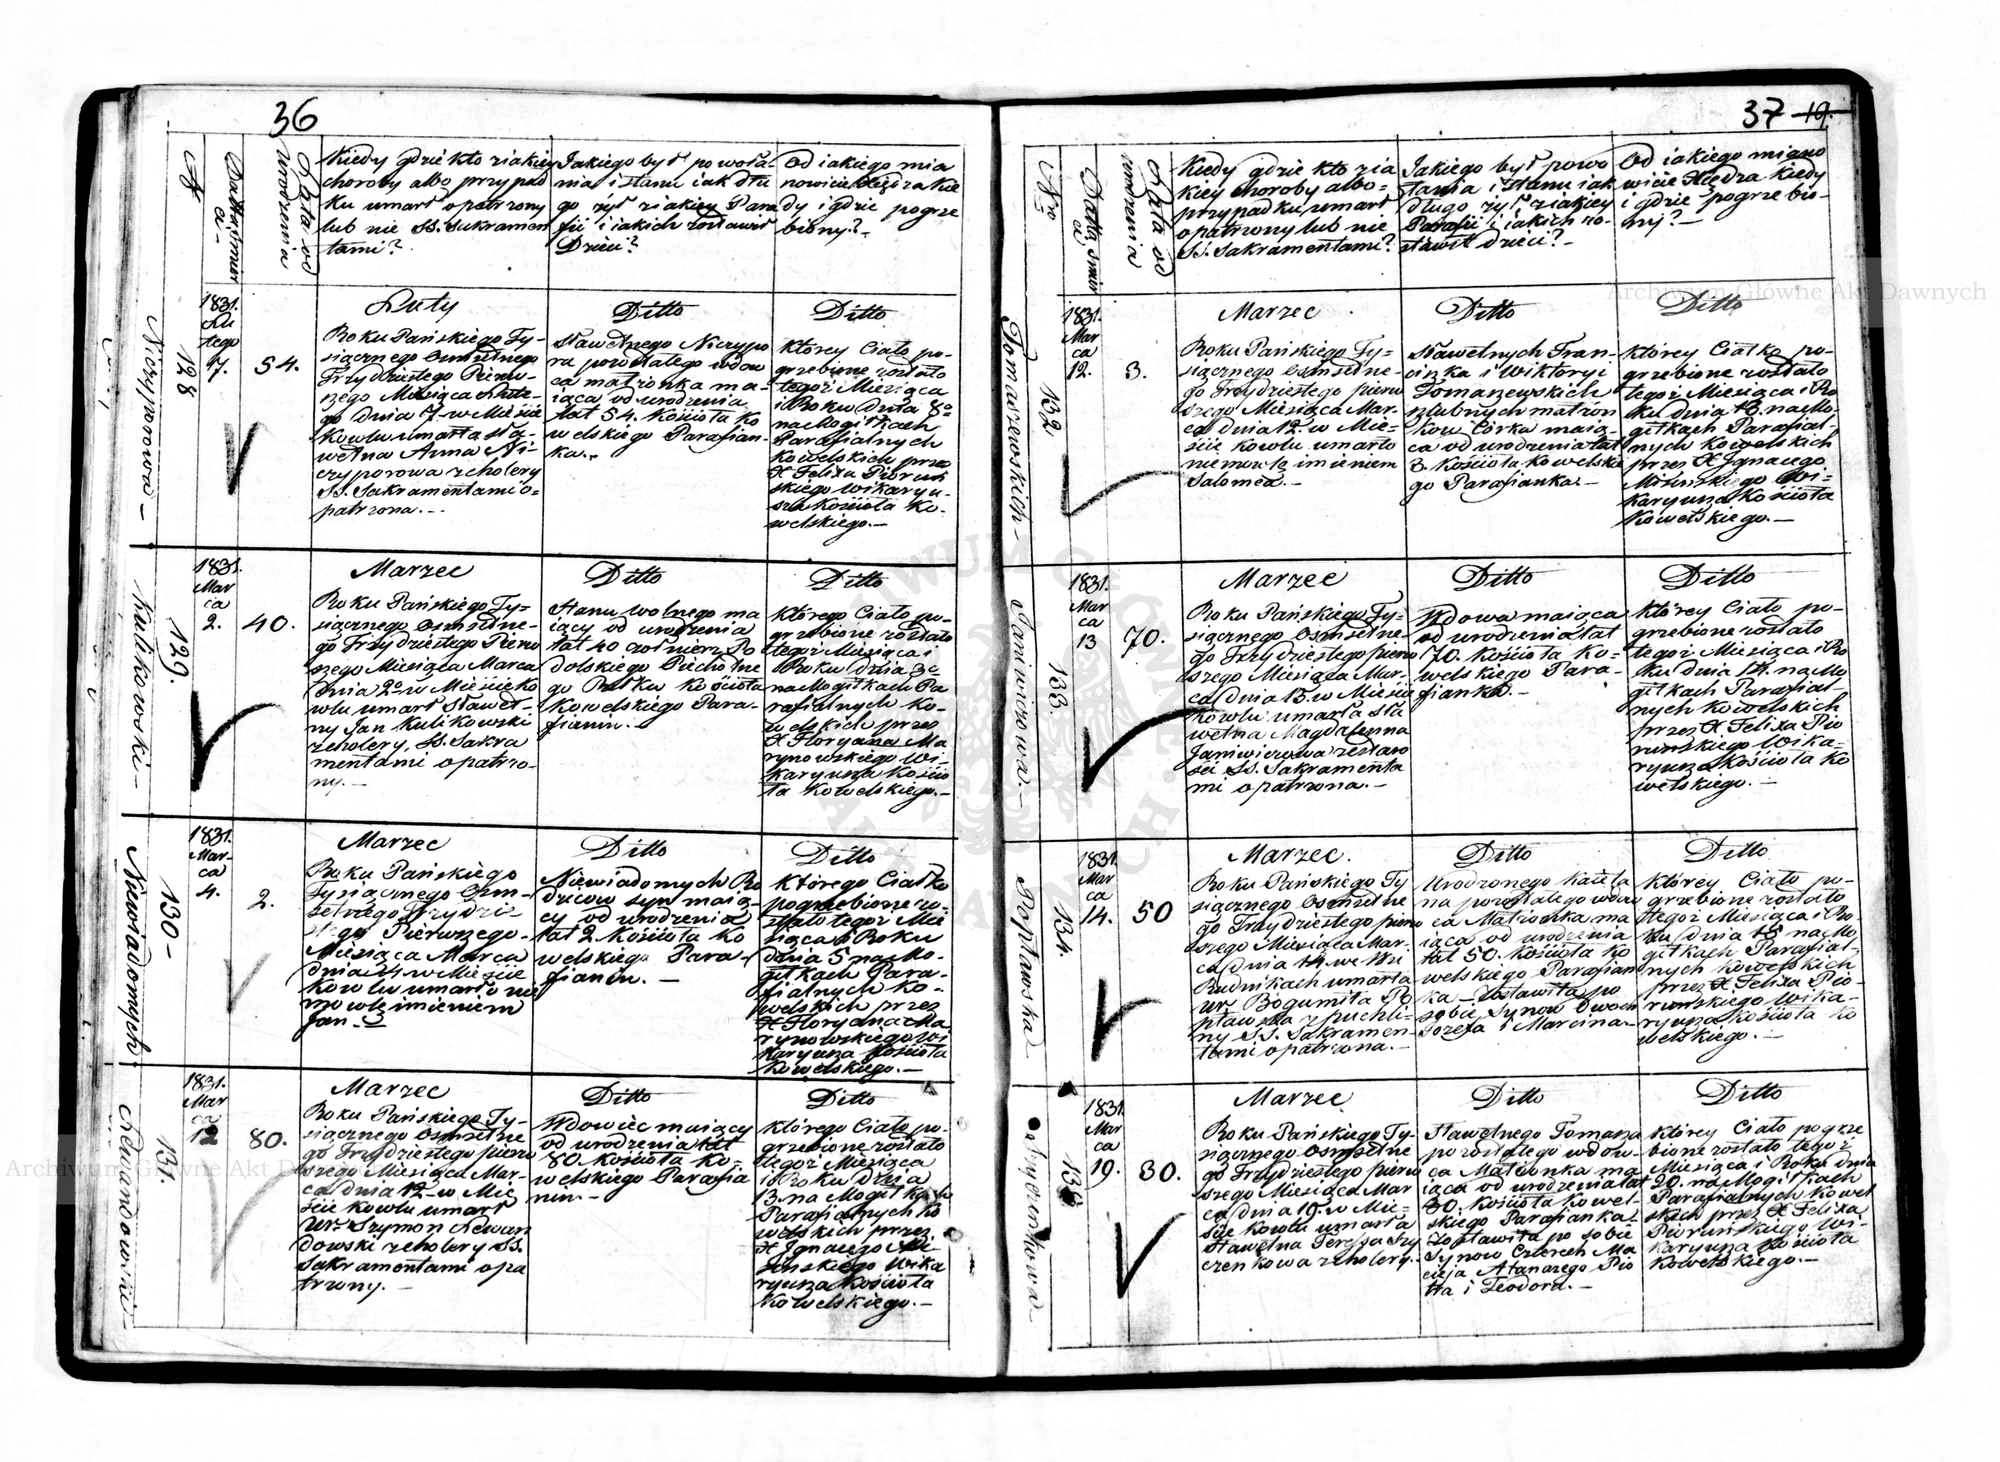 36
Kiedy gdzie kto z iakiey
choroby albo przypad
ku umarł opatrzony
lub nie SS. Sakramen
tami?
Jakiego był powoła-
nia i stanu iak dłu
go żył z iakiey Para
fii i iakich zostawił
Dzieci?
Od iakiego mia
nowicie Xiędza kie
dy i gdzie pogrze
biony?-
Niczyporowa -
128
1831.
Lu
tego
7.
54.
Luty
Roku Pańskiego Ty-
siącznego Osmsetnego
Trzydziestego Pierw-
szego Miesiąca Lute-
go dnia 7. w Mieście
Kowlu umarła sła-
wetna Anna Ni-
czyporowa z cholery
SS. Sakramentami o=
patrzona. -
Ditto
Sławetnego Niczypo
ra pozostałego wdow
ca matronka ma-
iąca od urodzenia
lat 54. Kościoła Ko
welskiego Parafian-
ka.-
Ditto
Którey Ciało po-
grzebione zostało
tegoż Miesiąca
i Roku dnia 8o
na Mogiłkach
Parafialnych
Kowelskich przez
X Felixa Pioruń
skiego Wikaryu-
sza Kościoła Ko-
welskiego. -
Kulikowski -
129.
1831.
Mar
ca
2.
40.
Marzec
Roku Pańskiego Ty=
siącznego Osmsetne-
go Trzydziestego Pierw
szego Miesiąca Marca
Dnia 2o w Mieście Ko
wlu umarł Sławet-
ny Jan Kulikowski
z cholery, SS. Sakra
mentami opatrzo-
ny. -
Ditto
Stanu wolnego ma
iący od urodzenia
lat 40 żołnierz Po
dolskiego Piechotne
go Pułku Kościoła
Kowelskiego Para-
fianin. -
Ditto
Którego Ciało po-
grzebione zostało
tegoż Miesiąca i
Roku dnia 3o
na Mogiłkach Pa
rafialnych Ko-
welskich przez
X Floryana Ma
rynowskiego Wi-
karyusza Kościo
ła Kowelskiego. -
Niewiadomych
130 -
1831.
Mar-
ca
4.
2.
Marzec
Roku Pańskiego
Tysiącznego Osm-
setnego Trzydzie
stego Pierwszego-
Miesiąca Marca
dnia 4 w Mieście
Kowlu umarło nie
mowle imieniem
Jan -
Ditto
Niewiadomych Ro
dziców syn maią-
cy od urodzenia
lat 2. Kościoła Ko
welskiego Para-
fianin. -
Ditto
Którego Ciałko
pogrzebione zo-
stało tegoż Mie
siąca i Roku
dnia 5 na Mo-
giłkach Para-
fialnych Ko-
welskich przez
X Floryana Ma
rynowskiego Wi
karyusza Kościoła
Kowelskiego. -
Lewandowski -
131.
1831.
Mar
ca
12
80.
Marzec
Roku Pańskiego Ty-
siącznego Osmsetne
go Trzydziestego pierw
szego Miesiąca Mar-
ca dnia 12 w Mie
ście Kowlu umarł
Ur. Szymon Lewan
dowski z cholery SS.
Sakramentami opa
trzony. -
Ditto
Wdowiec maiący
od urodzenia lat
80. Kościoła Ko-
welskiego Parafia
nin. -
Ditto
Którego Ciało po-
grzebione zostało
tegoż Miesiąca
i Roku dnia
13. na Mogiłkach
Parafialnych Ko
welskich przez
X Ignacego Mi
sińskiego Wika
ryusza Kościoła
Kowelskiego. -
37 19.
Kiedy gdzie kto z ia
kiey choroby albo=
przypadku umarł
opatrzony lub nie
SS. Sakramentami?
Jakiego był powo
łania i stanu iak
długo żył z iakiey
Parafii i iakich zo-
stawił dzieci? -
Od iakiego miano
wicie Xiędza kiedy
i gdzie pogrzebio-
ny? -
Tomaszewskich -
132
1831.
Mar
ca
12.
3.
Marzec
Roku Pańskiego Ty=
siącznego Osmsetne-
go Trzydziestego pierw
szego Miesiąca Mar-
ca dnia 12. w Mie-
ście Kowlu umarło
niemowle imieniem
Salomea. -
Ditto
Sławetnych Fran-
ciszka i Wiktoryi
Tomaszewskich
szlubnych matron
kow Córka maią-
ca od urodzenia lat
3. Kościoła Kowelskie
go Parafianka. -
Ditto
Którey Ciałko po-
grzebione zostało
tegoż Miesiąca i Ro
ku dnia 13. na Mo-
giłkach Parafial-
nych Kowelskich
przez X Ignacego
Misińskiego Wi=
karyusza Kościoła
Kowelskiego. -
Janiwiczowa. -
133.
1831.
Mar
ca
13
70.
Marzec
Roku Pańskiego Ty=
siącznego Osmsetne-
go Trzydziestego pierw
szego Miesiąca Mar.
ca dnia 13. w Mieście
Kowlu umarła sła
wetna Magdalena
Janiwiczowa ze staro
ści SS. Sakramenta
mi opatrzona. -
Ditto
Wdowa maiąca
od urodzenia lat
70. Kościoła Ko-
welskiego Para-
fianka. -
Ditto
Którey Ciało po-
grzebione zostało
tegoż Miesiąca i Ro
ku dnia 14. na Mo
giłkach Parafial-
nych Kowelskich
przez X Felixa Pio
runskiego Wika=
ryusza Kościoła Ko
welskiego. -
Popławska
134.
1831.
Mar
ca
14.
50
Marzec.
Roku Pańskiego Ty
siącznego Osmsetne
go Trzydziestego pierw
szego Miesiąca Mar.
ca dnia 14. we Wsi
Rudnikach umarła
Ur. Bogumiła Po
pławska z puchli=
ny SS. Sakramen-
tami opatrzona. -
Ditto
Urodzonego Kaieta
na pozostałego wdow
ca Matronka ma
iąca od urodzenia
lat 50. Kościoła Ko
welskiego Parafian
ka - Zostawiła po
sobie Synow Dwoch
Jozefa i Marcina -
Ditto
Którey Ciało po-
grzebione zostało
tegoż Miesiąca i Ro-
ku dnia 15 na Mo
giłkach Parafial-
nych Kowelskich
przez X. Felixa Pio-
runskiego Wika-
ryusza Kościoła Ko
welskiego. -
135
1831.
Mar
ca
19.
30.
Marzec
Roku Pańskiego Ty-
siącznego Osmsetne
go Trzydziestego pierw
szego Miesiąca Mar
ca dnia 19. w Mie-
ście Kowlu umarła
Sławetna Teressa Szy
czenkowa z cholery.
Ditto
Sławetnego Tomasza
pozostałego wdow-
ca Matronka ma
iąca od urodzenia lat
30. Kościoła Kowel
skiego Parafianka
Zostawiła po sobie
Synow Czterech Ma
cieja Atanazego Pio
tra i Teodora. -
Ditto
Którey Ciało pogrze
bione zostało tegoż
Miesiąca i Roku dnia
20. na Mogiłkach
Parafialnych Kowel
skich przez X Felixa
Pioruńskiego Wi-
karyusza Kościoła
Kowelskiego. -
Archiwum Główne Akt Dawnych
Archiwum Główne Akt Dawnych